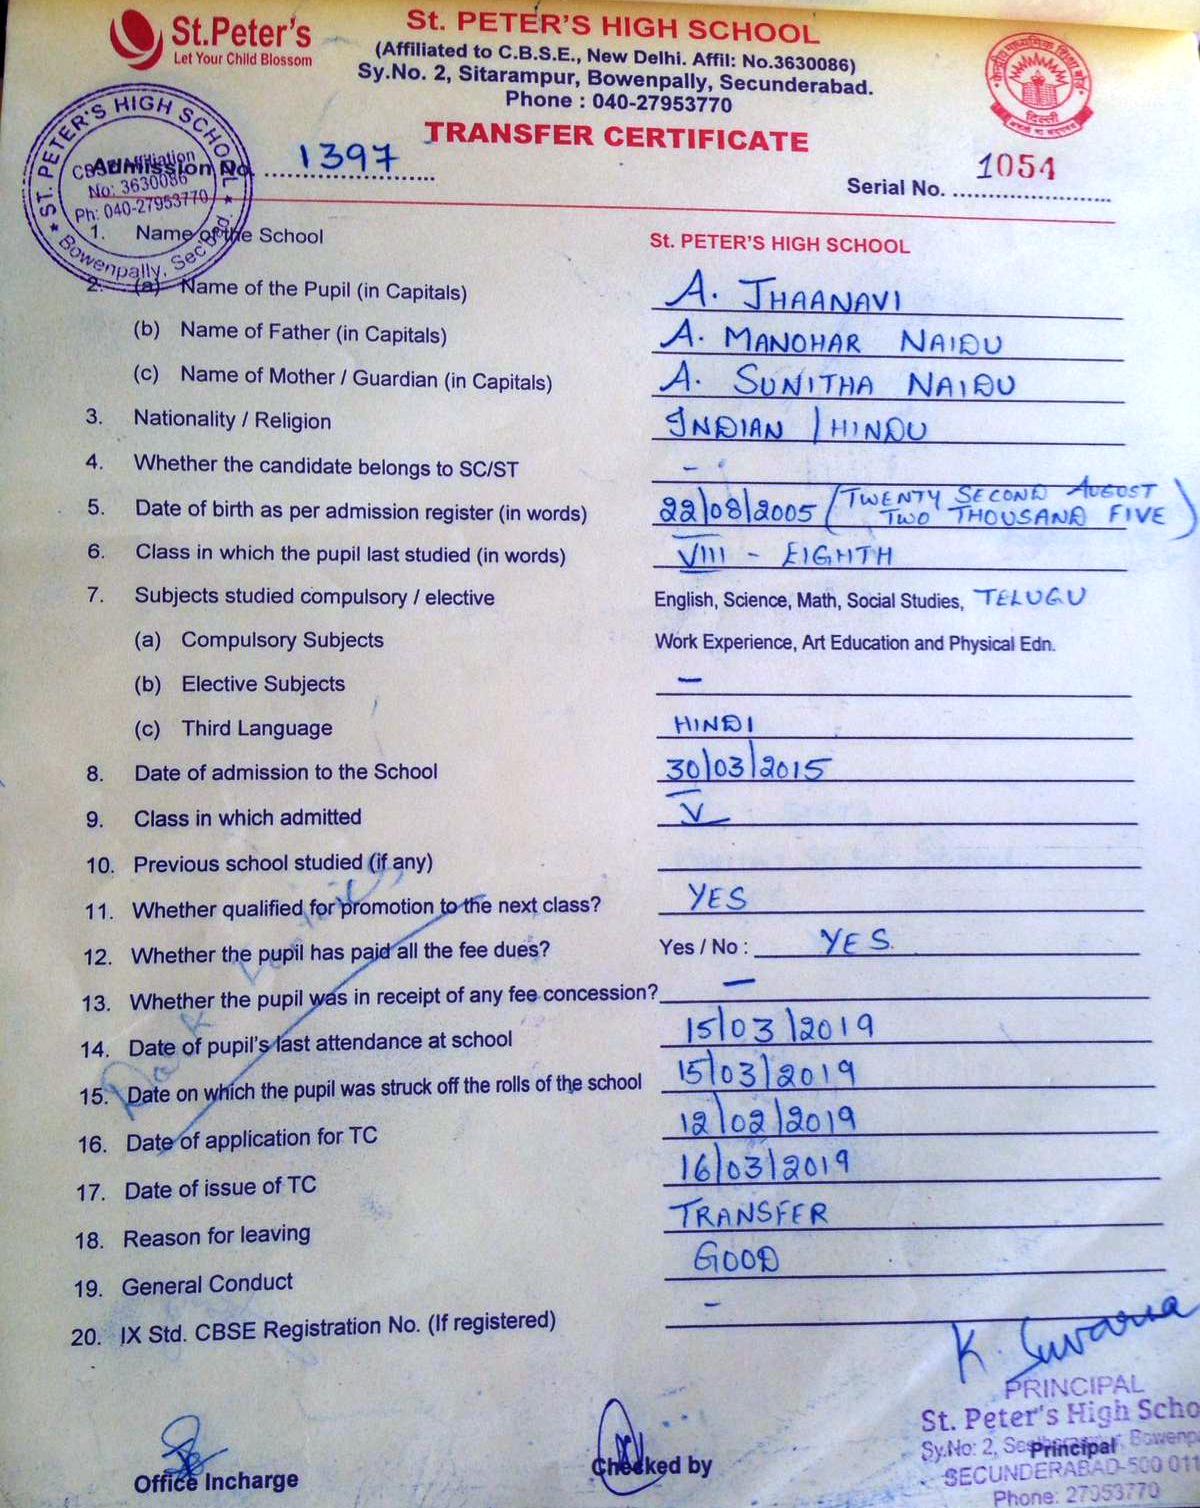 St.Peter's
Let Your Child Blossom
St. PETER'S HIGH SCHOOL
(Affiliated to C.B.S.E., New Delhi. Affil: No.3630086)
Sy.No. 2, Sitarampur, Bowenpally, Secunderabad.
Phone : 040-27953770
TRANSFER CERTIFICATE
ST. PETER'S HIGH SCHOOL
CBSE Affiliation
No: 3630086
Ph: 040-27953770
Bowenpally, Sec'bad.
Admission No. 1397
Serial No. 1054
1. Name of the School St. PETER'S HIGH SCHOOL
2. (a) Name of the Pupil (in Capitals) A. JHAANAVI
(b) Name of Father (in Capitals) A. MANOHAR NAIDU
(c) Name of Mother / Guardian (in Capitals) A. SUNITHA NAIDU
3. Nationality / Religion INDIAN / HINDU
4. Whether the candidate belongs to SC/ST -
5. Date of birth as per admission register (in words) 22/08/2005 (TWENTY SECOND AUGUST
TWO THOUSAND FIVE)
6. Class in which the pupil last studied (in words) VIII - EIGHTH
7. Subjects studied compulsory / elective English, Science, Math, Social Studies, TELUGU
(a) Compulsory Subjects Work Experience, Art Education and Physical Edn.
(b) Elective Subjects -
(c) Third Language HINDI
8. Date of admission to the School 30/03/2015
9. Class in which admitted V
10. Previous school studied (if any)
11. Whether qualified for promotion to the next class? YES
12. Whether the pupil has paid all the fee dues? Yes / No : YES.
13. Whether the pupil was in receipt of any fee concession? -
14. Date of pupil's last attendance at school 15/03/2019
15. Date on which the pupil was struck off the rolls of the school 15/03/2019
16. Date of application for TC 12/02/2019
17. Date of issue of TC 16/03/2019
18. Reason for leaving TRANSFER
19. General Conduct GOOD
20. IX Std. CBSE Registration No. (If registered) -
K. Suvarna
PRINCIPAL
St. Peter's High Scho
Sy.No: 2, Bowenp
SECUNDERABAD-500 011
Phone: 27953770
Office Incharge
Checked by
Principal